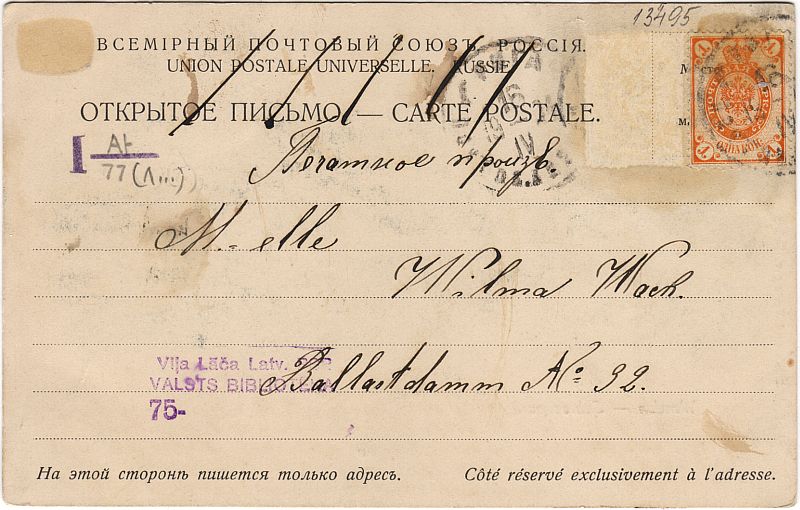 13495
ВСЕМІРНЫЙ ПОЧТОВЫЙ СОЮЗЪ. РОССІЯ.
UNION POSTALE UNIVERSELLE. RUSSIE
ОТКРЫТОЕ ПИСЬМО — CARTE POSTALE.
1
77 (Л...)
Печатное произв.
M-elle
Wilma Wack.
Vija Lāča Latv.
VALSTS
75-
Ballastdamm № 32.
На этой сторонѣ пишется только адресъ.
Côté réservé exclusivement à l'adresse.